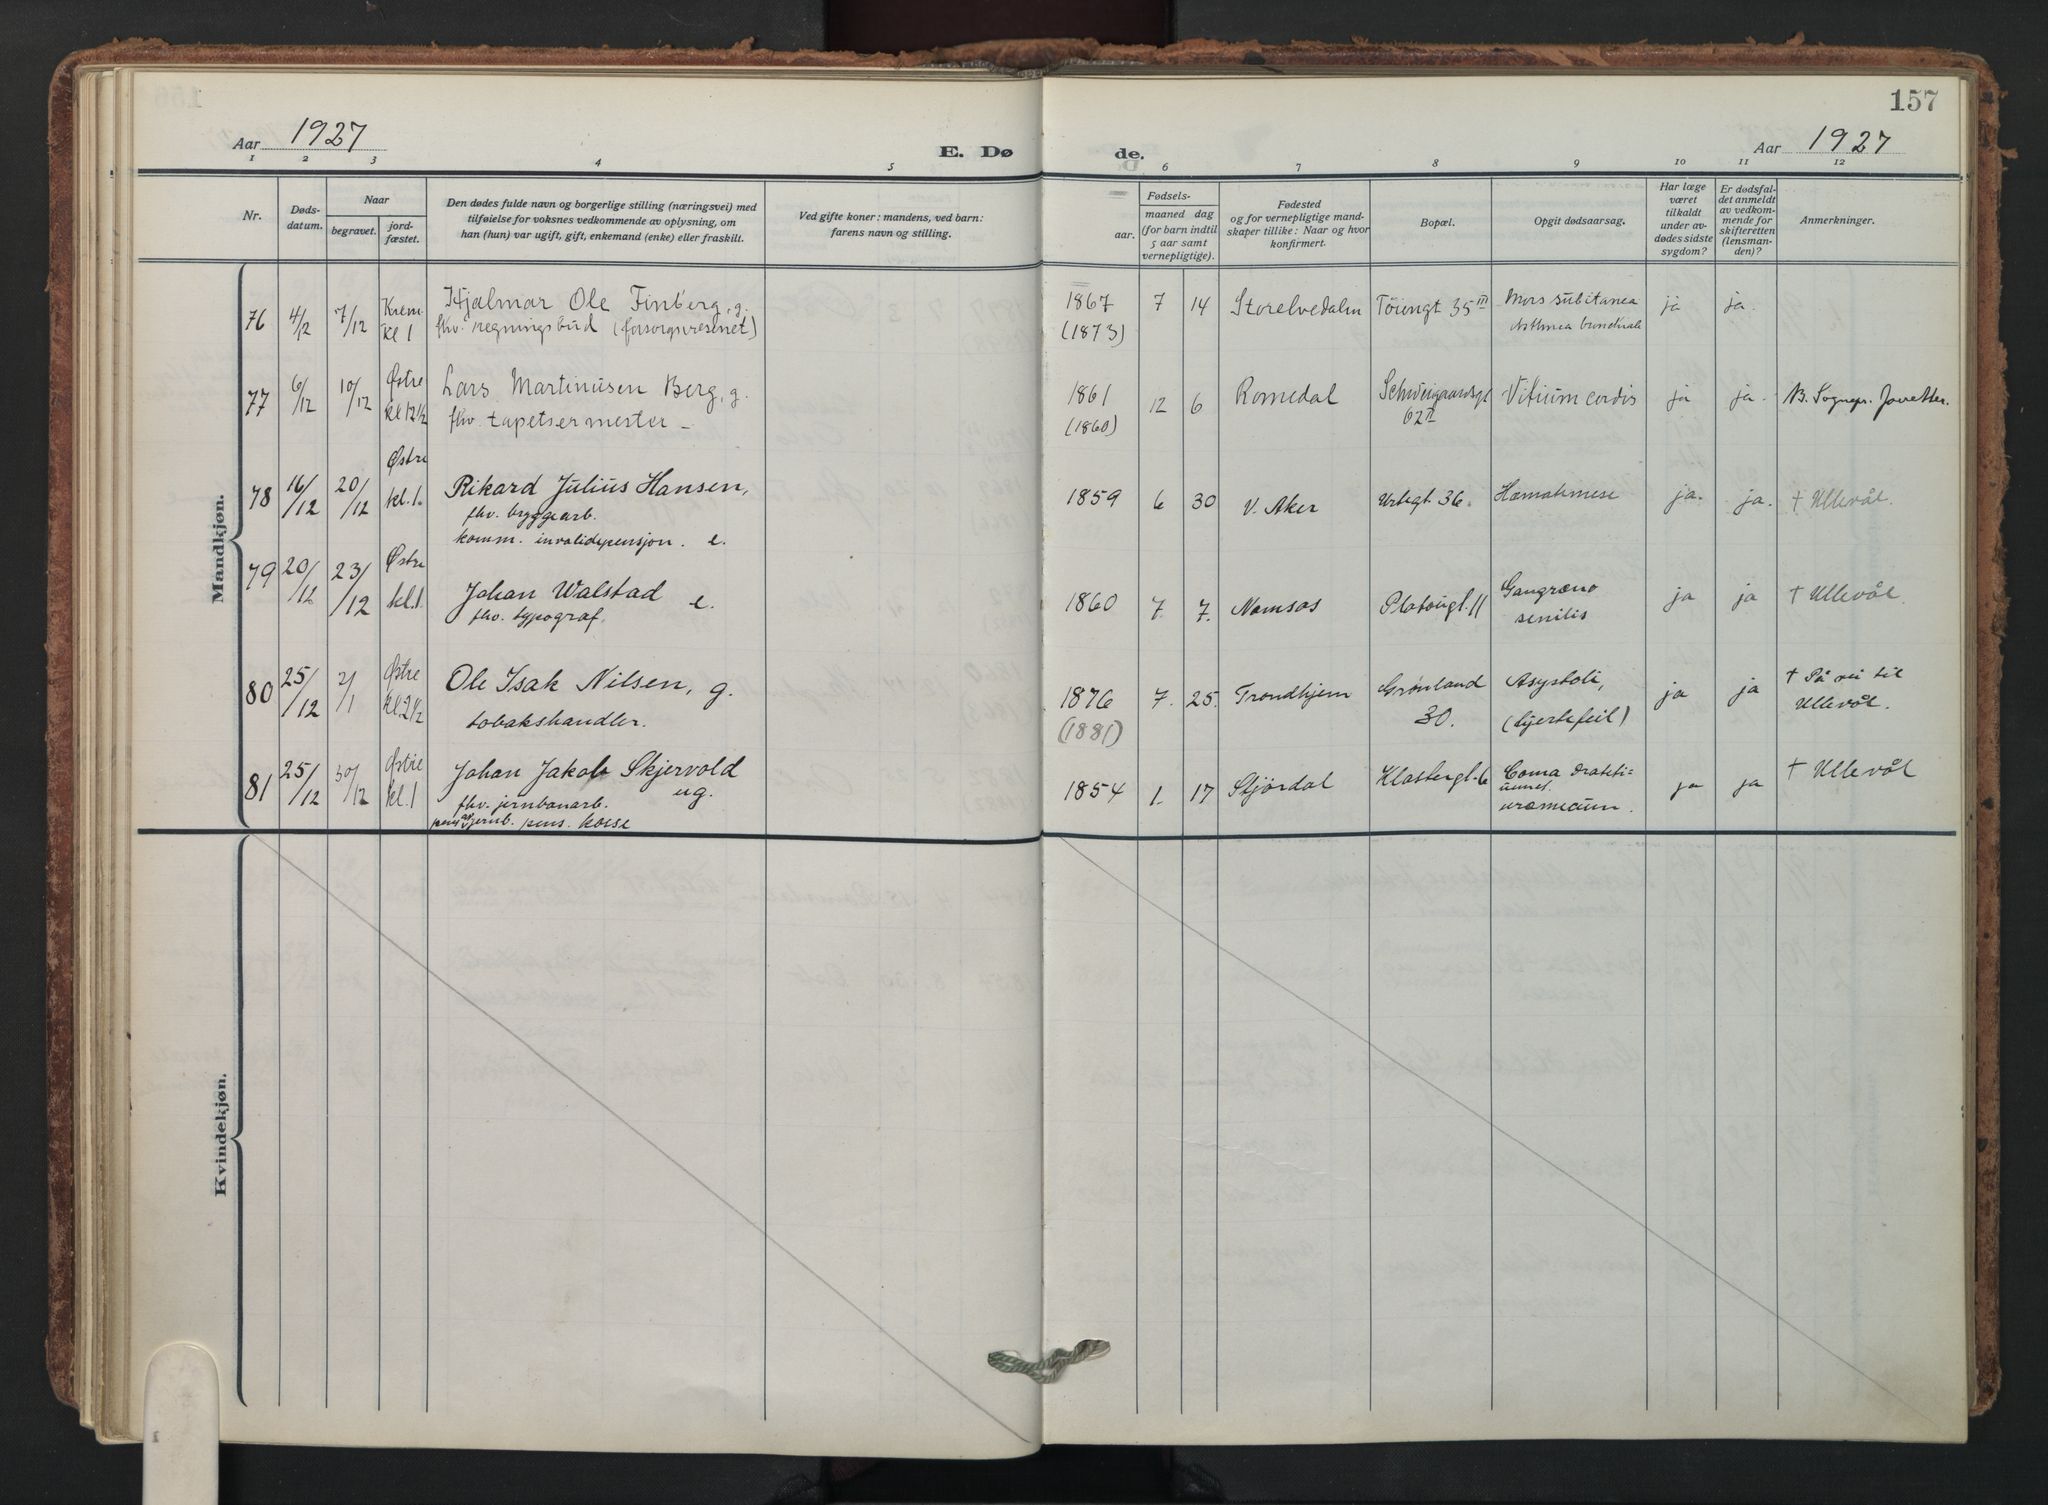 157
Aar 1927
E. Døde.
Aar 1927
1 2 3 4 5 6 7 8 9 10 11 12
Nr.
Døds-
datum.
Naar
begravet.
jord-
fæstet.
Den dødes fulde navn og borgerlige stilling (næringsvei) med
tilføielse for voksnes vedkommende av oplysning, om
han (hun) var ugift, gift, enkemand (enke) eller fraskilt.
Ved gifte koner: mandens, ved barn:
farens navn og stilling.
Fødsels-
aar.
maaned dag
(for barn indtil
5 aar samt
vernepligtige).
Fødested
og for vernepligtige mand-
skaper tillike: Naar og hvor
konfirmert.
Bopæl.
Opgit dødsaarsag.
Har læge
været
tilkaldt
under av-
dødes sidste
sygdom?
Er dødsfal-
det anmeldt
av vedkom-
mende for
skifteretten
(lensman-
den)?
Anmerkninger.
Mandkjøn.
76 4/12 7/12 Krem. kl 1 Hjalmar Ole Finberg, g. 1867 7 14 Storelvedalen Töiengt 35 III Mors subitanea ja ja.
fhv. regningsbud (forsorgsvesenet) (1873) Asthma
77 6/12 10/12 Østre kl 12 1/2 Lars Martinusen Berg, g. 1861 12 6 Romedal Schweigaardsgt 62 II Vitium cordis ja ja. Sognepr.
fhv. tapetsermester (1860)
78 16/12 20/12 Østre kl. 1. Rikard Julius Hansen, 1859 6 30 V. Aker Urtegt 36. Hæmatemese ja. ja. † Ullevål.
fhv. bryggearb.
komm. invalidepensjon. e.
79 20/12 23/12 Østre kl. 1. Johan Walstad e. 1860 7. 7. Namsos Platougt. 11 Gangræna ja ja † Ullevål.
fhv. typograf. senilis
80 25/12 2/1 Østre kl. 2 1/2 Ole Isak Nilsen, g. 1876 7. 25. Trondhjem Grønland Asystoli, ja ja † På vei til
tobakshandler. (1881) 30. (hjertefeil) Ullevål.
81 25/12 30/12 Østre kl. 1 Johan Jakob Skjervold ug. 1854 1. 17 Stjördal Klostergt. 6 Coma ja ja † Ullevål
fhv. jernbanarb. uræmicum.
pens. av jernb. pens. kasse
Kvindekjøn.